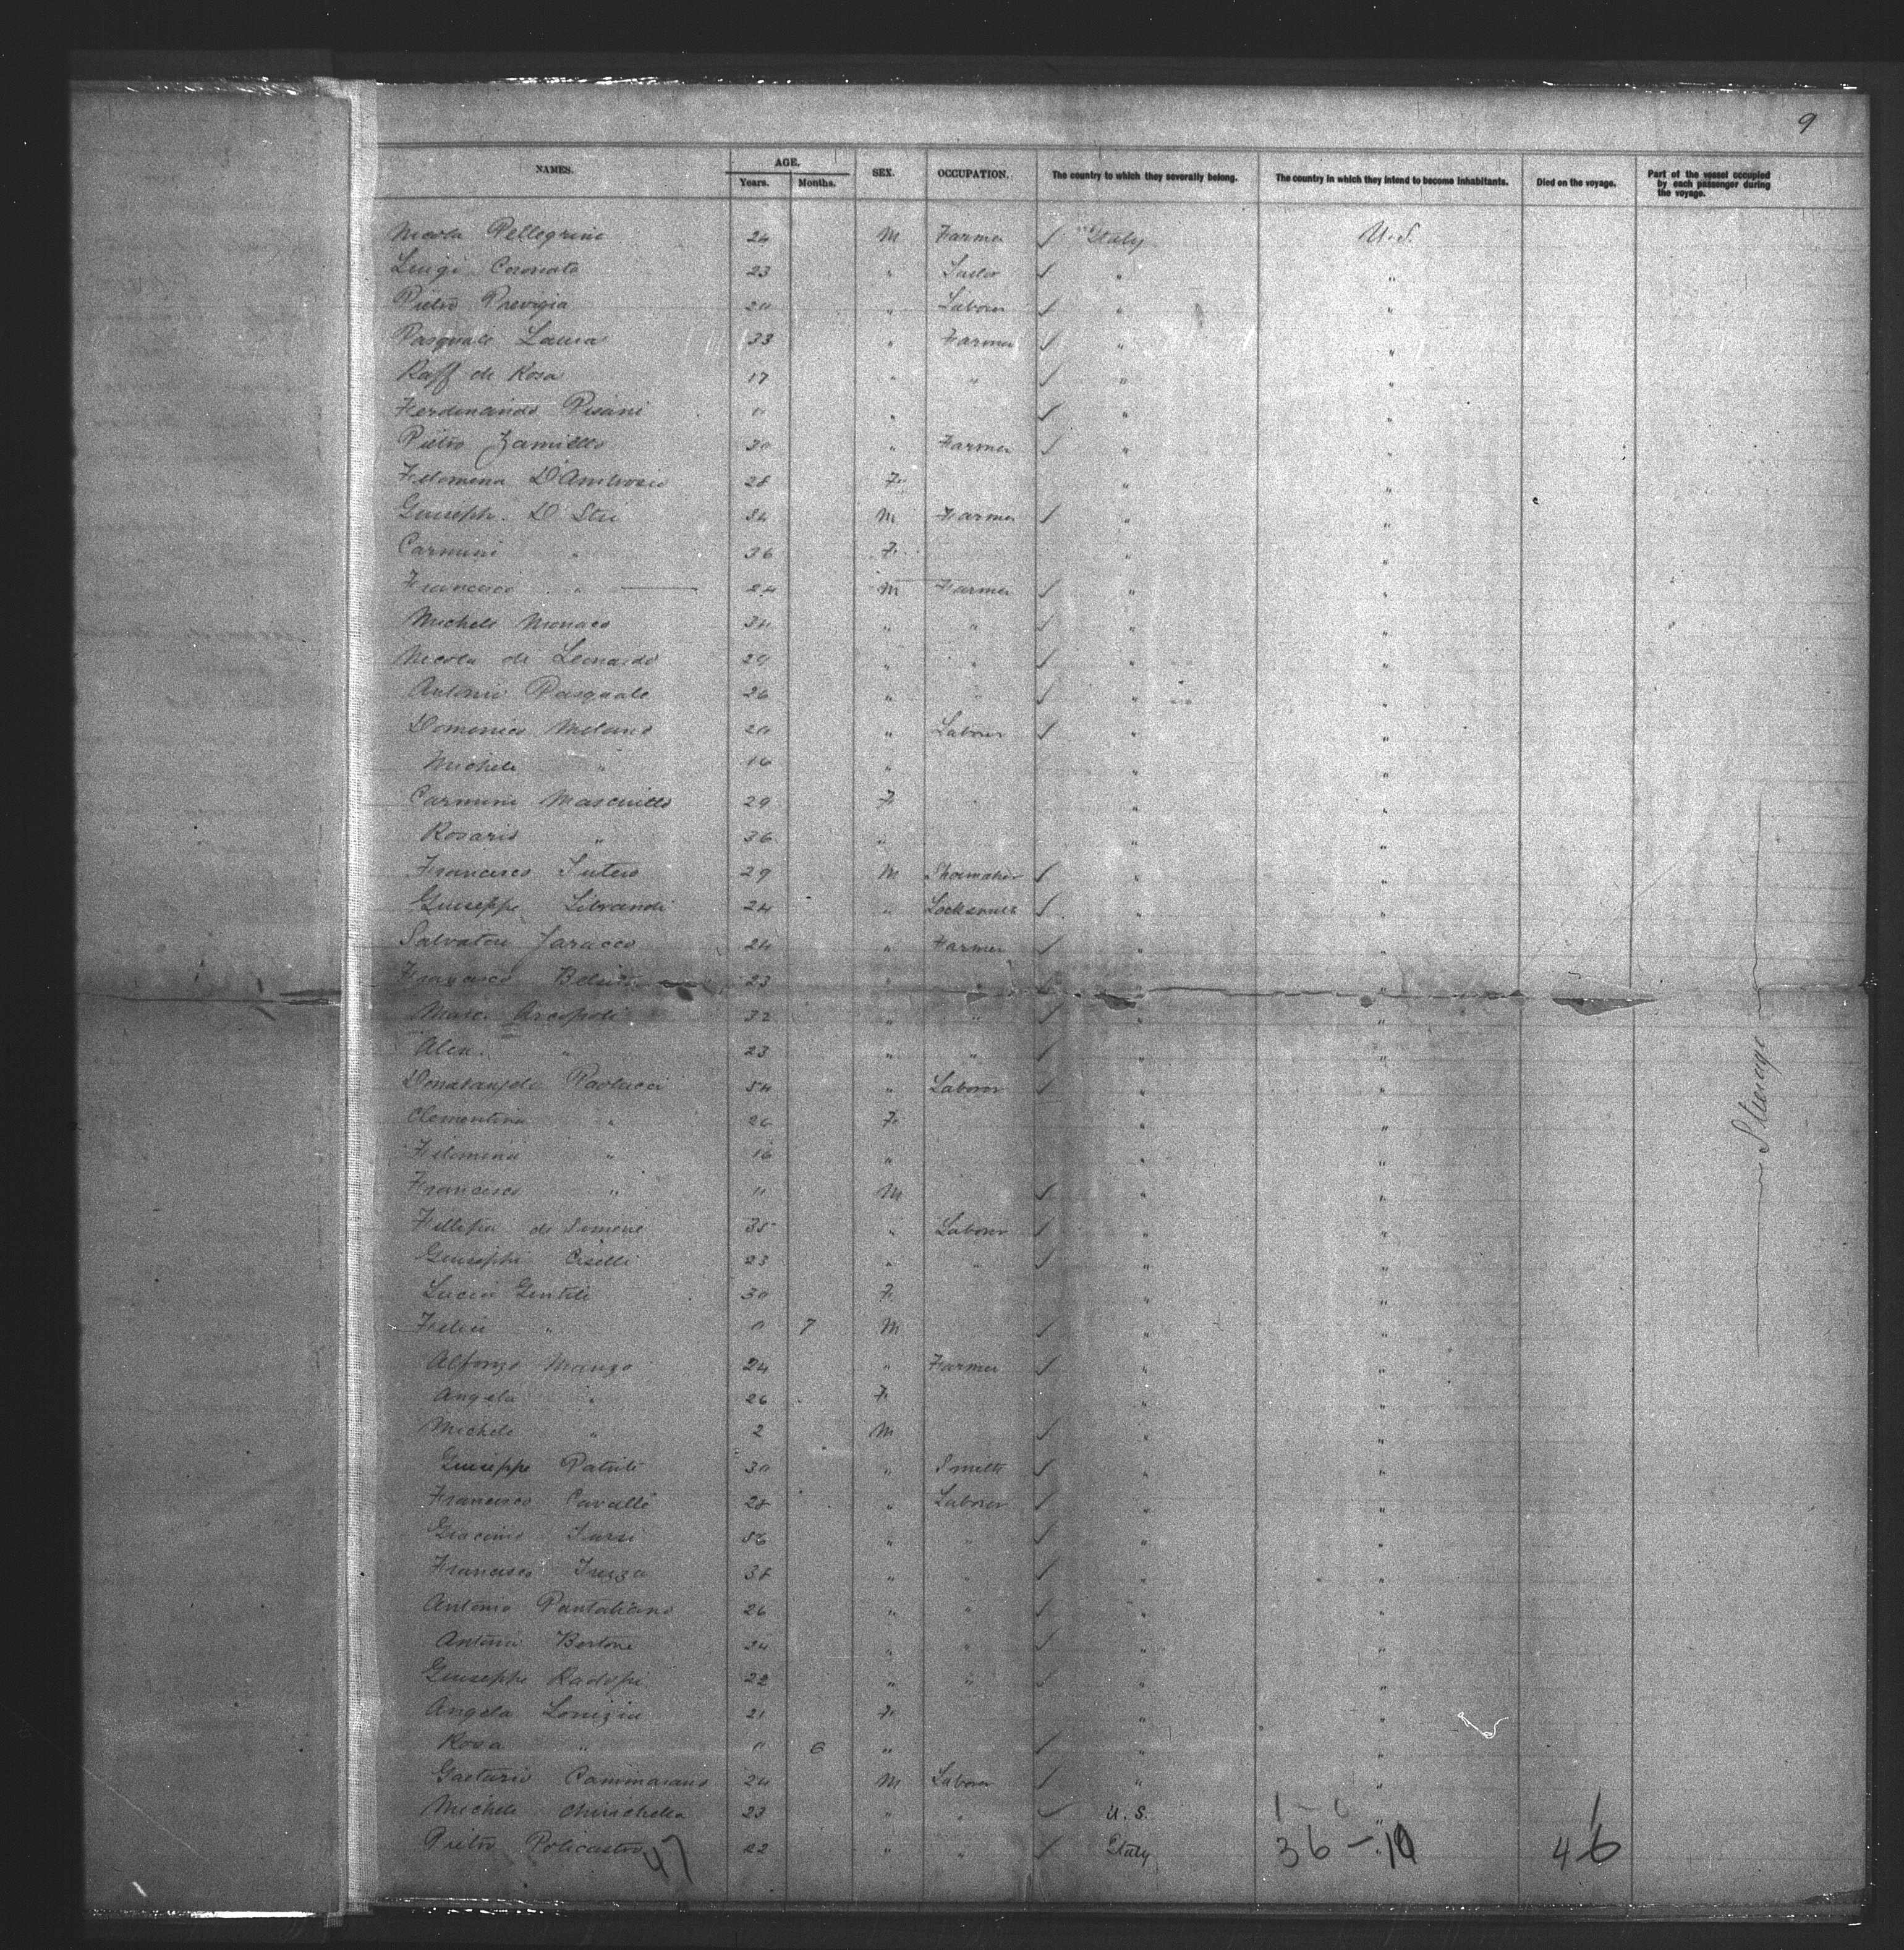 9
NAMES. AGE. Years. Months. SEX. OCCUPATION. The country to which they severally belong. The country in which they intend to become inhabitants. Died on the voyage. Part of the vessel occupied by each passenger during the voyage.
Nicola Pellegrini 24 M Farmer ✓ Italy U.S.
Luigi Coronato 23 " ✓ " "
Pietro 20 " Laborer ✓ " "
Pasquale Lauria 33 " Farmer ✓ " "
Raff de Rosa 17 " " ✓ " "
Ferdinando Pisani 11 " ✓ " "
Pietro Zamiello 30 " Farmer ✓ " "
Filomena D'Ambrosio 28 F. " "
Giuseppe D' 34 M Farmer ✓ " "
Carmini " 36 F. " "
Francesco " 24 M Farmer ✓ " "
Michele Monaco 34 " " ✓ " "
Nicola di Leonardo 29 " " ✓ " "
Antonio Pasquale 26 " " ✓ " "
Domenico Milano 20 " Laborer ✓ " "
Michele " 16 " " "
Carmini Mascuillo 29 F. " "
Rosario " 36 " " "
Francesco 29 M Shoemaker ✓ " "
Giuseppe Librandi 24 " Locksmith ✓ " "
Salvatore Jaracco 24 " Farmer ✓ " "
Francesco 23 " " ✓ " "
Marc. Arcopoli 32 " " ✓ " "
Alex. " 23 " " ✓ " "
Donatangelo Paolucci 54 " Laborer ✓ " "
Clementina " 26 F. " "
Filomena " 16 " " "
Francesco " 11 M ✓ " "
de Simone 35 " Laborer ✓ " "
Giuseppe Ciselli 23 " " ✓ " "
Lucia Gentile 30 F. " "
Felice " 0 7 M ✓ " "
Alfonso Manzo 24 " Farmer ✓ " "
Angela " 26 F. " "
Michele " 2 M ✓ " "
Giuseppe Patriti 30 " Smith ✓ " "
Francesco Cavallo 28 " Laborer ✓ " "
Giacomo 56 " " ✓ " "
Francesco 38 " " ✓ " "
Antonio Pantaleano 26 " " ✓ " "
Antonio Bertone 34 " " ✓ " "
Giuseppe Radopi 22 " " ✓ " "
Angela 21 F. " "
Rosa " 0 6 " ✓ " "
Gaetano Cammarano 24 M Laborer ✓ " "
Michele Chirichella 23 " " ✓ U.S. "
Pietro Policastro 22 " " ✓ Italy
Steerage
47
36 - 10
46